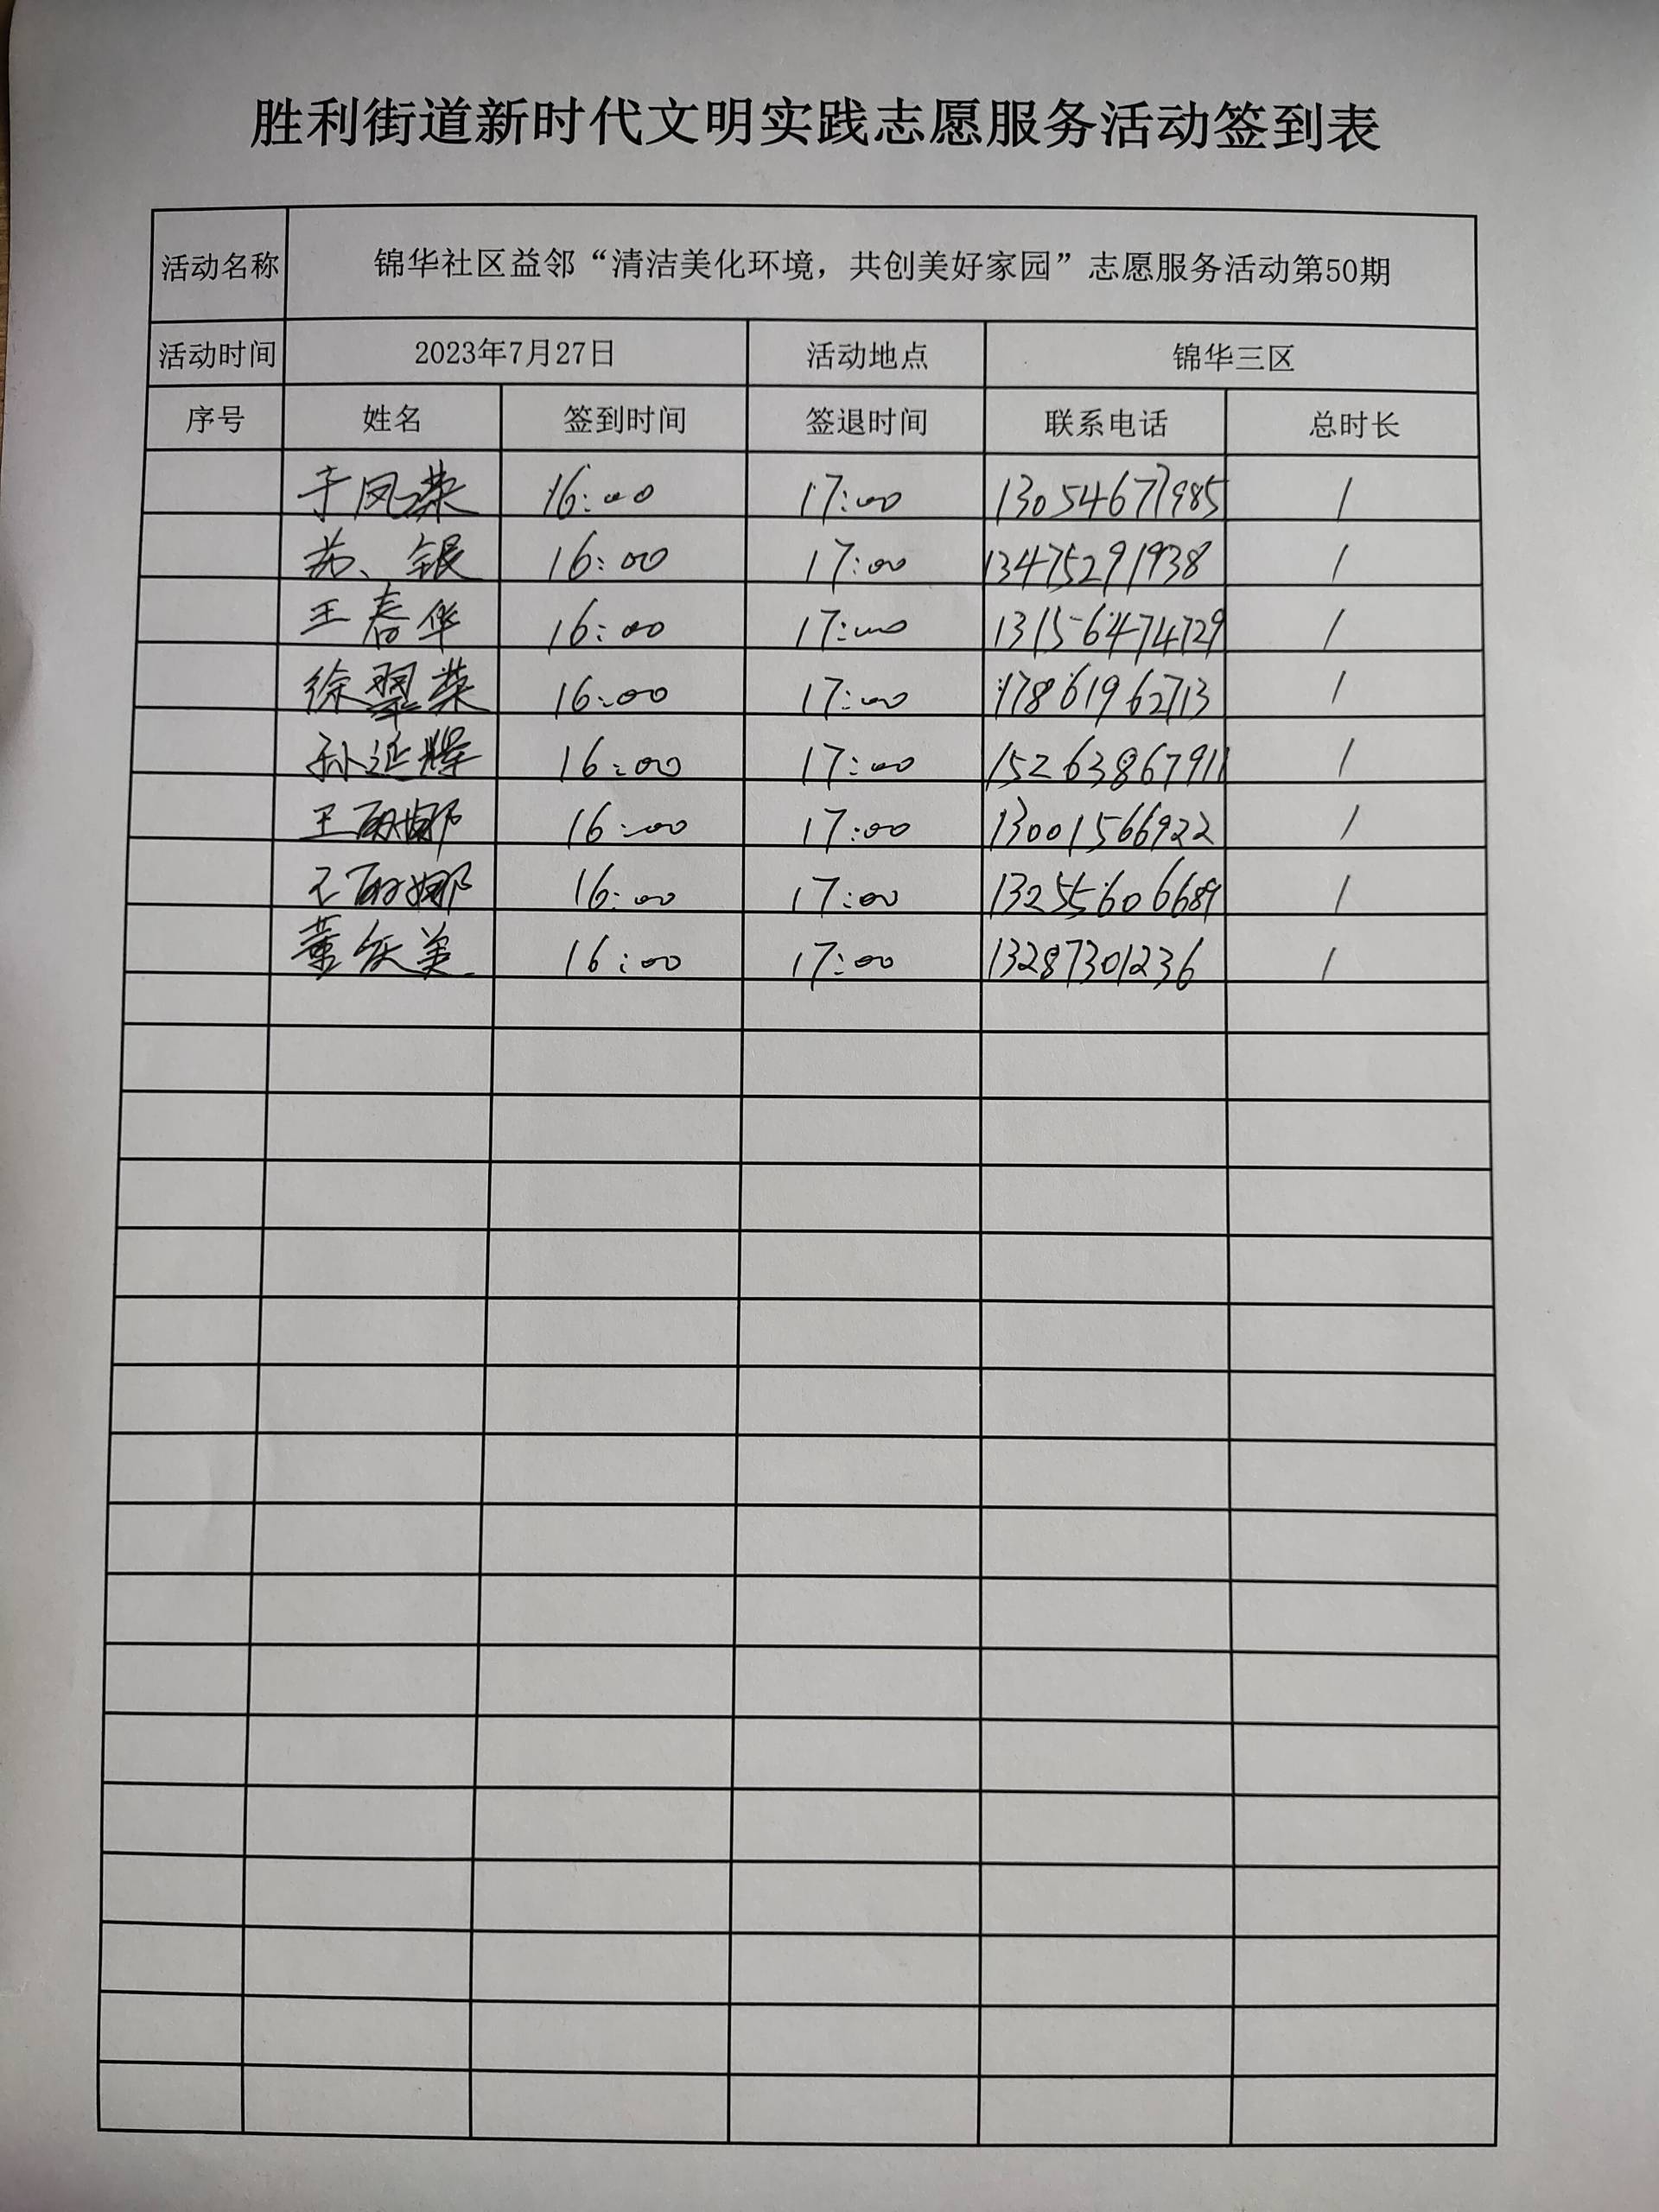 胜利街道新时代文明实践志愿服务活动签到表
活动名称 锦华社区益邻“清洁美化环境，共创美好家园”志愿服务活动第50期
活动时间 2023年7月27日 活动地点 锦华三区
序号 姓名 签到时间 签退时间 联系电话 总时长
于凤荣 16:00 17:00 13054671985 1
苏、银 16:00 17:00 13475291938 1
王春华 16:00 17:00 13156474729 1
徐翠荣 16:00 17:00 17861962713 1
孙延辉 16:00 17:00 15263867911 1
王丽娜 16:00 17:00 13001566922 1
王丽娜 16:00 17:00 13255606689 1
董庆美 16:00 17:00 13287301236 1